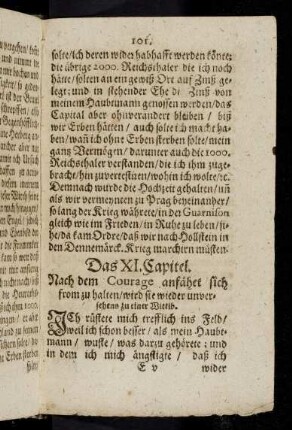 101.
solte/ich deren wider habhafft werden könte;
die übrige 2000. Reichsthaler die ich noch
hätte/ solten an ein gewiß Ort auf Zinß ge-
legt: und in stehender Ehe di Zinß von
meinem Haubtmann genossen werden/das
Capital aber ohnverandert bleiben / biß
wir Erben hätten / auch solte ich macht ha-
ben/ wañ ich ohne Erben sterben solte/ mein
gantz Vermögen/ darunter auch die 1000.
Reichsthaler verstanden/ die ich ihm zuge-
bracht/ hin zuvertestiren/ wohin ich wolte/ ꝛc.
Demnach wurde die Hochzeit gehalten/ uñ
als wir vermeynten zu Prag beyeinander/
solang der Krieg währete/in der Guarnison
gleich wie im Frieden/ in Ruhe zu leben/ si-
he/ da kam Ordre/ daß wir nach Hollstein in
den Dennemärck. Krieg marchirn müsten.
Das XI. Capitel.
Nach dem Courage anfähet sich
from zu halten/ wird sie wieder unver-
sehens zu einer Wittib.
ICh rüstete mich trefflich ins Feld/
weil ich schon besser / als mein Haubt-
mann / wuste/ was darzu gehörete; und
in dem ich mich ängstigte / daß ich
E v
wider